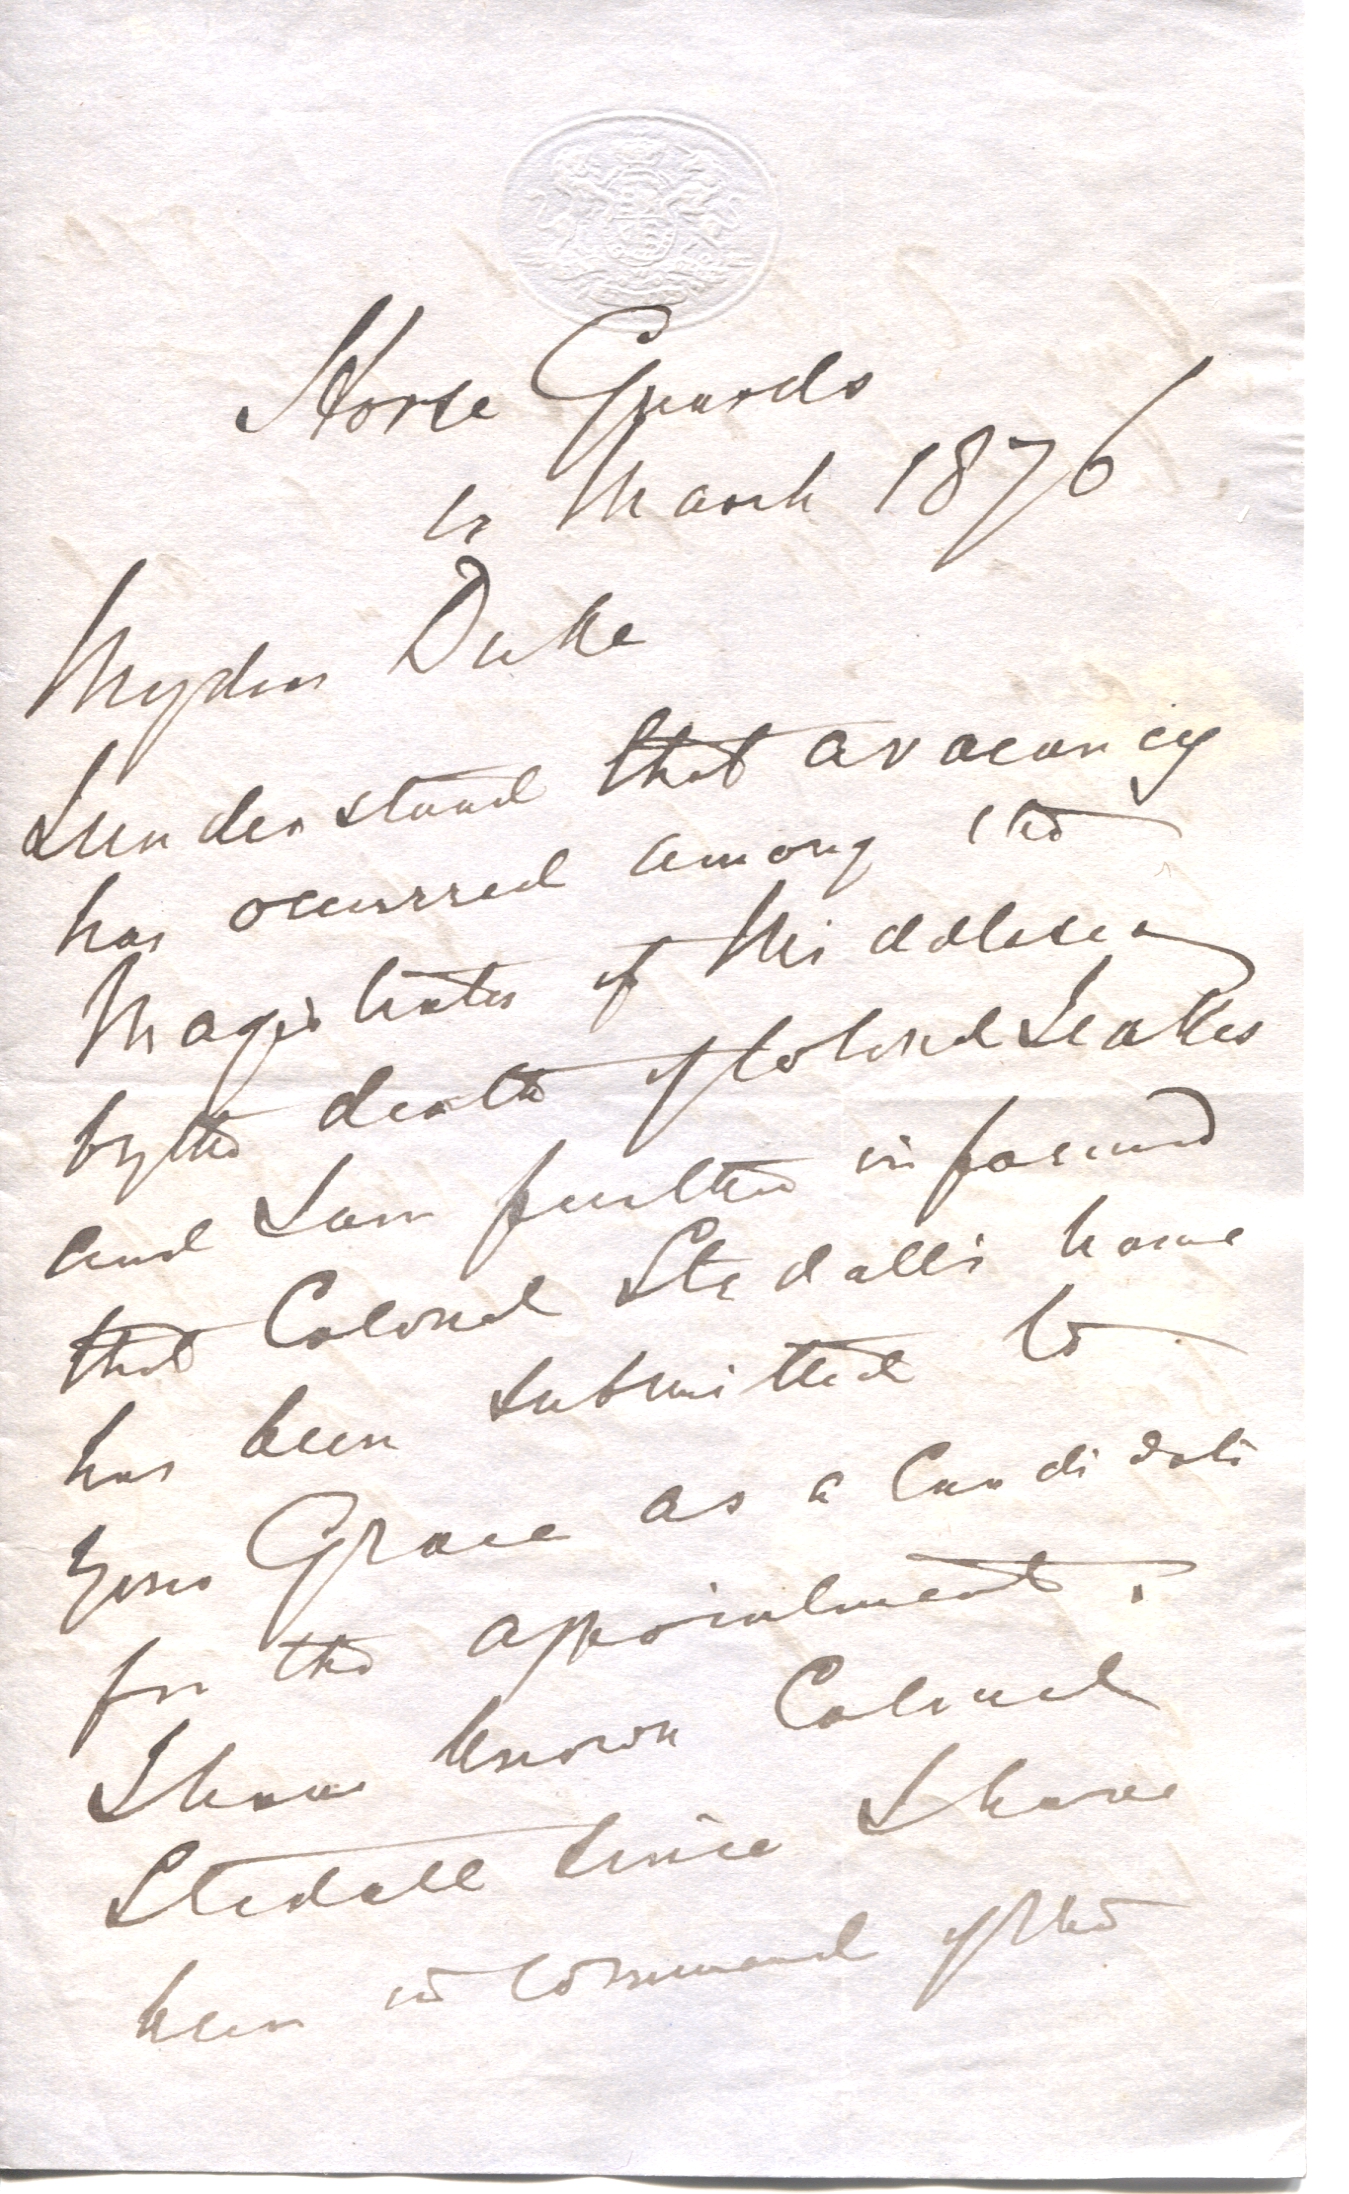 Horse Guards
March 1876
My dear Duke
I understand that a vacancy
has occurred among the
Magistrates of Middlesex
by the death of Colonel
and I am further informed
that Colonel Stedall's name
has been submitted to
your Grace as a Candidate
for the appointment.
I have known Colonel
Stedall since I have
been in command of the